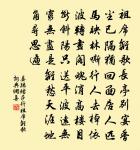 祖席離歌長亭別宴香
塵已隔猶回面居人匹
馬映林嘶行人去棹依
波轉畫閣魂消高樓目
斷斜陽只送平波遠無
窮無盡是離愁天涯地
角尋思遍
晏殊踏莎行祖席離歌